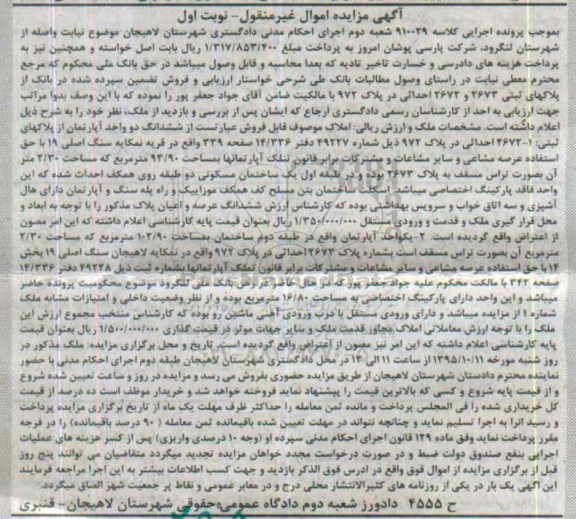 آگهی مزایده اموال غیرمنقول - نوبت اول
بموجب پرونده اجرایی کلاسه ۹۱۰۰۲۹ شعبه دوم اجرای احکام مدنی دادگستری شهرستان لاهیجان موضوع نیابت واصله از
شهرستان لنگرود، شرکت پارسی پوشان امروز به پرداخت مبلغ ۱/۳۱۷/۸۵۳/۴۰۰ ریال بابت اصل خواسته و همچنین نیز به
پرداخت هزینه های دادرسی و خسارت تاخیر تادیه که بعدا محاسبه و قابل وصول میباشد در حق بانک ملی محکوم که مرجع
محترم معطی نیابت در راستای وصول مطالبات بانک طی شرحی خواستار ارزیابی و فروش تضمین سپرده شده در بانک از
پلاکهای ثبتی ۲۶۷۳ و ۲۶۷۲ احداثی در پلاک ۹۷۲ با مالکیت ضامن آقای جواد جعفر پور را نموده که با این وصف بدوا مراتب
جهت ارزیابی به احد از کارشناسان رسمی دادگستری ارجاع که ایشان پس از بررسی و بازدید از ملک، نظر خود را به شرح ذیل
اعلام داشته است. مشخصات ملک و ارزش ریالی: املاک موصوف قابل فروش عبارتست از ششدانگ دو واحد آپارتمان از پلاکهای
ثبتی: ۱-۲۶۷۲ احداثی در پلاک ۹۷۲ ذیل شماره ۴۹۲۲۷ دفتر ۱۴/۳۳۶ صفحه ۳۳۹ واقع در قریه نمکابه سنگ اصلی ۱۹ با حق
استفاده عرصه مشاعی و سایر مشاعات و مشترکات برابر قانون تملک آپارتمانها بمساحت ۹۳/۹۰ مترمربع که مساحت ۲/۳۰ متر
آن بصورت تراس مسقف به پلاک ۲۶۷۳ بوده و در طبقه اول یک ساختمان مسکونی دو طبقه روی همکف احداث شده که این
واحد فاقد پارکینگ اختصاصی میباشد. اسکلت ساختمان بتن مسلح کف همکف موزاییک و راه پله سنگ و آپارتمان دارای هال
آشپزی و سه اتاق خواب و سرویس بهداشتی بوده که کارشناس ارزش ششدانگ عرصه و اعیان پلاک مذکور را با توجه به ابعاد و
محل قرار گیری ملک و قدمت و ورودی مستقل ۱/۳۵۰/۰۰۰/۰۰۰ ریال بعنوان قیمت پایه کارشناسی اعلام داشته که این امر مصون
از اعتراض واقع گردیده است. ۲-یکواحد آپارتمان واقع در طبقه دوم ساختمان بمساحت ۱۰۲/۹۰ مترمربع که مساحت ۲/۳۰
مترمربع آن بصورت تراس مسقف است بشماره پلاک ۲۶۷۳ احداثی در پلاک ۹۷۲ واقع در نمکابه لاهیجان سنگ اصلی ۱۹ بخش
۱۴ با حق استفاده عرصه مشاعی و سایر مشاعات و مشترکات برابر قانون تملک آپارتمانها بشماره ثبت ذیل ۴۹۲۲۸ دفتر ۱۴/۳۳۶
صفحه ۳۴۲ با مالکت محکوم علیه جواد جعفر پور که در حال حاضر در رهن بانک ملی لنگرود موضوع محکومیت پرونده حاضر
میباشد و این واحد دارای پارکینگ اختصاصی به مساحت ۱۶/۸۰ مترمربع بوده و از نظر وضعیت داخلی و امتیازات مشابه ملک
شماره ۱ از مزایده میباشد و دارای ورودی مستقل با درب ورودی آهنی ماشین رو بوده که کارشناس منتخب مجموع ارزش این
ملک را با توجه ارزش معاملاتی املاک مجاور قدمت ملک و سایر جهات موثر در قیمت گذاری ۱/۵۰۰/۰۰۰/۰۰۰ ریال بعنوان قیمت
پایه کارشناسی اعلام داشته که این امر نیز مصون از اعتراض واقع گردیده است. تاریخ و محل برگزاری مزایده: ملک مذکور در
روز شنبه مورخه ۱۳۹۵/۱۰/۱۱ از ساعت ۱۱ الی ۱۳ در محل دادگستری شهرستان لاهیجان طبقه دوم اجرای احکام مدنی با حضور
نماینده محترم دادستان شهرستان لاهیجان از طریق مزایده حضوری بفروش می رسد و مزایده در روز و ساعت تعیین شده شروع
و از قیمت پایه شروع و کسی که بالاترین قیمت را پیشنهاد نماید فروخته خواهد شد و خریدار موظف است ده درصد از قیمت
کل خریداری شده را فی المجلس پرداخت و مانده ثمن معامله را حداکثر ظرف مهلت یک ماه از تاریخ برگزاری مزایده پرداخت
و رسید انرا به اجرا تسلیم نماید و چنانچه نتواند در مهلت تعیین شده باقیمانده ثمن معامله ( ۹۰ درصد باقیمانده) را در فرجه
مقرر پرداخت نماید وفق ماده ۱۲۹ قانون اجرای احکام مدنی سپرده او (وجه ۱۰ درصدی واریزی) پس از کسر هزینه های عملیات
اجرایی بنفع صندوق دولت ضبط و در صورت درخواست مجدد خواهان مزایده تجدید میگردد متقاضیان می توانند پنج روز
قبل از برگزاری مزایده از اموال فوق واقع در ادرس فوق الذکر بازدید و جهت کسب اطلاعات بیشتر به این اجرا مراجعه فرمایند
این آگهی یک بار در یکی از روزنامه های کثیرالانتشار محلی درج و در معابر عمومی و نقاط پر جمعیت شهر الصاق میگردد.
ح ۴۵۵۵ دادورز شعبه دوم دادگاه عمومی حقوقی شهرستان لاهیجان - قنبری